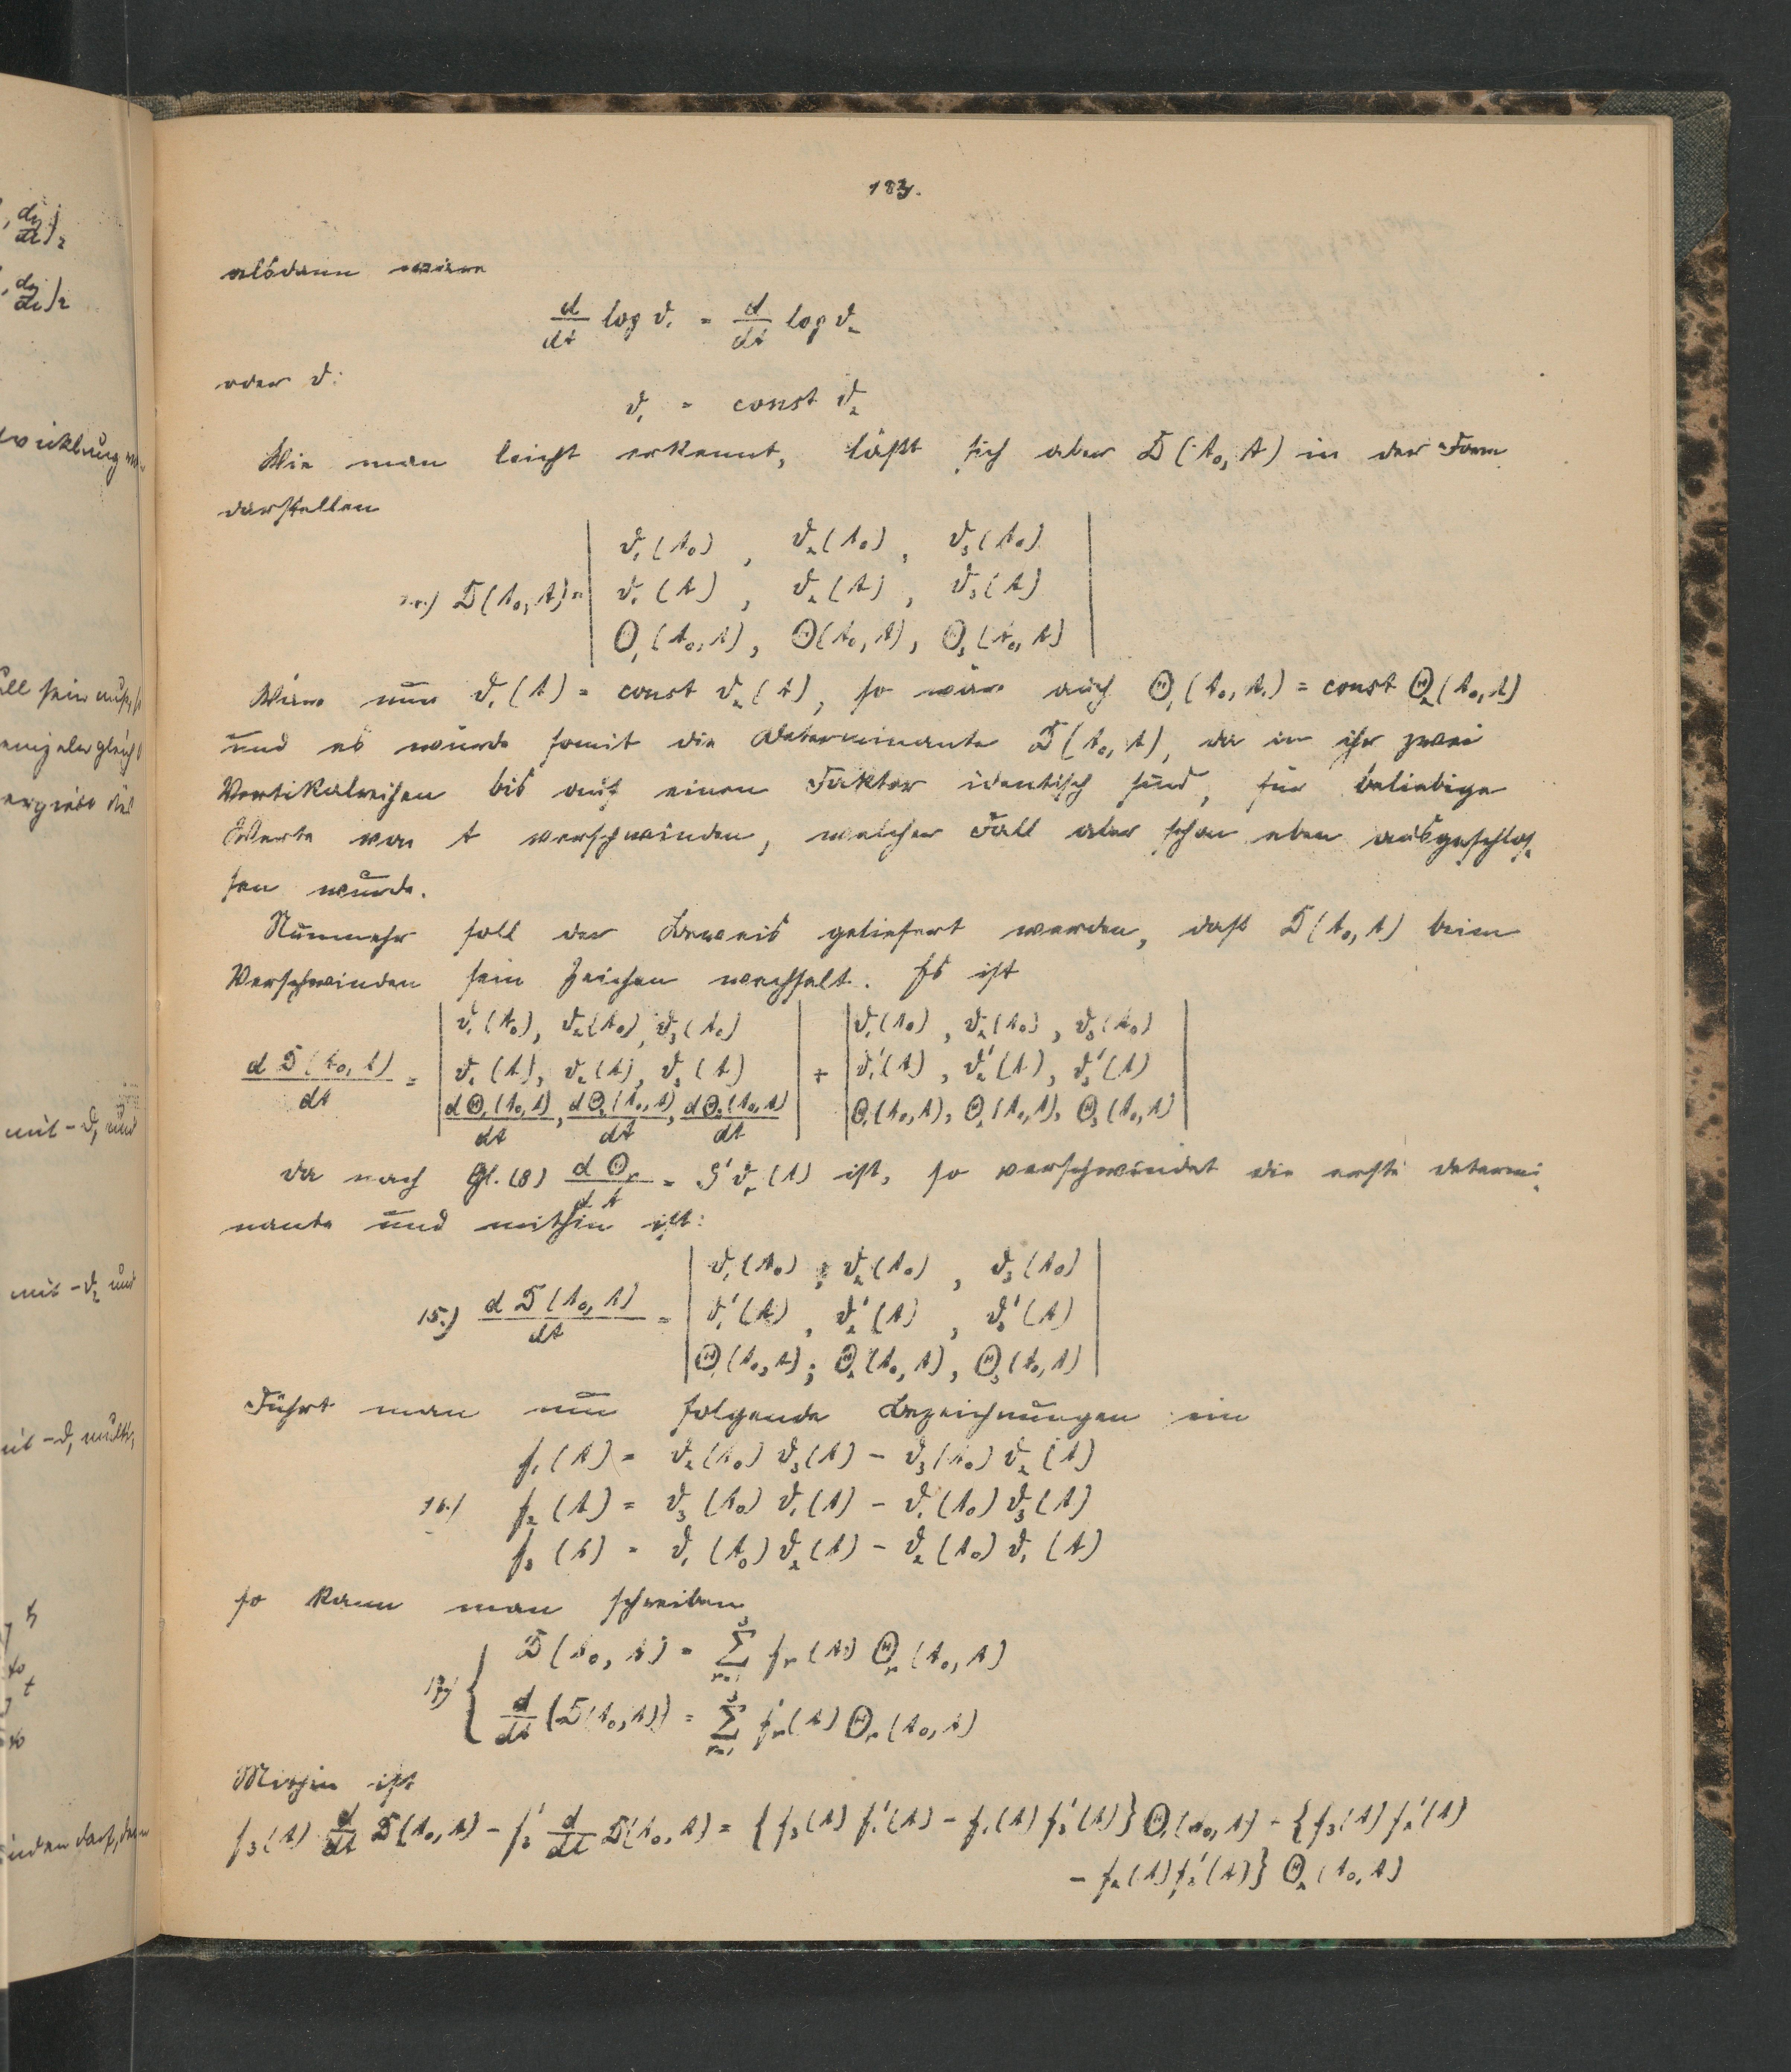 183.
alsdann wäre
d/dt log ϑ₁ = d/dt log ϑ₂
oder ϑ:
ϑ₁ = const ϑ₂
Wie man leicht erkennt, läßt sich aber D(t₀, t) in der Form
darstellen
D(t₀, t) = | ϑ₁(t₀), ϑ₂(t₀), ϑ₃(t₀) |
| ϑ₁(t), ϑ₂(t), ϑ₃(t) |
| Θ₁(t₀, t), Θ(t₀, t), Θ₃(t₀, t) |
Wäre nun ϑ₁(t) = const ϑ₂(t), so wäre auch Θ₁(t₀, t) = const Θ₂(t₀, t)
und es würde somit die Determinante D(t₀, t), da in ihr zwei
Vertikalreihen bis auf einen Faktor identisch sind, für beliebige
Werte von t verschwinden, welcher Fall aber schon oben ausgeschlos-
sen wurde.
Nunmehr soll der Beweis geliefert werden, daß D(t₀, t) beim
Verschwinden sein Zeichen wechselt. Es ist
dD(t₀, t)/dt = | ϑ₁(t₀), ϑ₂(t₀), ϑ₃(t₀) | + | ϑ₁(t₀), ϑ₂(t₀), ϑ₃(t₀) |
| ϑ₁(t), ϑ₂(t), ϑ₃(t) | | ϑ₁'(t), ϑ₂'(t), ϑ₃'(t) |
| dΘ₁(t₀, t)/dt, dΘ₂(t₀, t)/dt, dΘ₃(t₀, t)/dt | | Θ₁(t₀, t), Θ₂(t₀, t), Θ₃(t₀, t) |
da nach Gl. (8) dΘᵣ/dt = S'ϑᵣ(t) ist, so verschwindet die erste Determi-
nante und mithin ist:
15.) dD(t₀, t)/dt = | ϑ₁(t₀), ϑ₂(t₀), ϑ₃(t₀) |
| ϑ₁'(t), ϑ₂'(t), ϑ₃'(t) |
| Θ₁(t₀, t); Θ₂(t₀, t), Θ₃(t₀, t) |
Führt man nun folgende Bezeichnungen ein
f₁(t) = ϑ₂(t₀) ϑ₃(t) − ϑ₃(t₀) ϑ₂(t)
16.) f₂(t) = ϑ₃(t₀) ϑ₁(t) − ϑ₁(t₀) ϑ₃(t)
f₃(t) = ϑ₁(t₀) ϑ₂(t) − ϑ₂(t₀) ϑ₁(t)
so kann man schreiben
17.) { D(t₀, t) = Σ fᵣ(t) Θᵣ(t₀, t)
d/dt (D(t₀, t)) = Σ fᵣ'(t) Θᵣ(t₀, t)
Mithin ist
f₃(t) d/dt D(t₀, t) − f₃' d/dt D(t₀, t) = {f₃(t) f₁'(t) − f₁(t) f₃'(t)} Θ₁(t₀, t) + {f₃(t) f₂'(t)
− f₂(t) f₃'(t)} Θ₂(t₀, t)